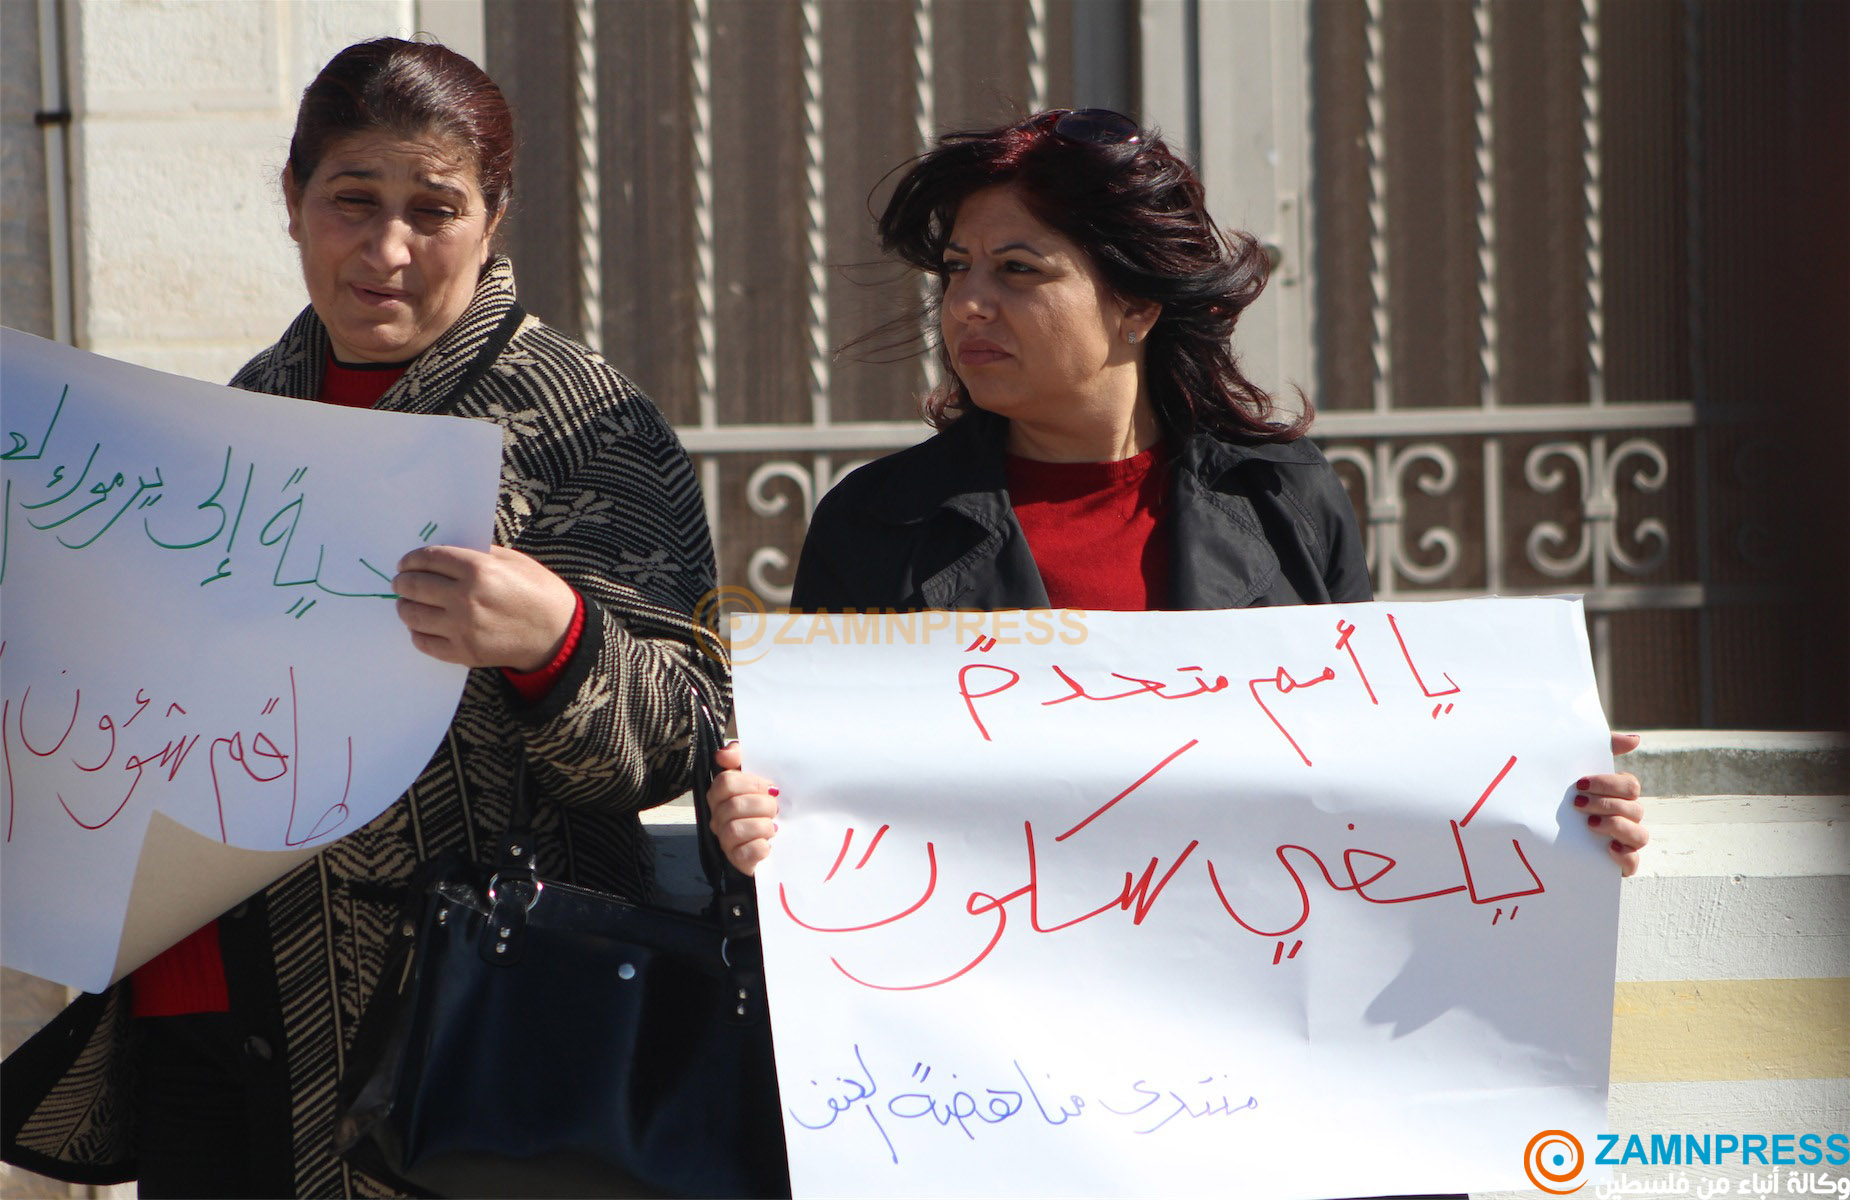 تحية إلى يرموك
طاقم شؤون
يا أمم متحدة
يكفي سكوت
منتدى مناهضة العنف
ZAMNPRESS
ZAMNPRESS
وكالة أنباء من فلسطين